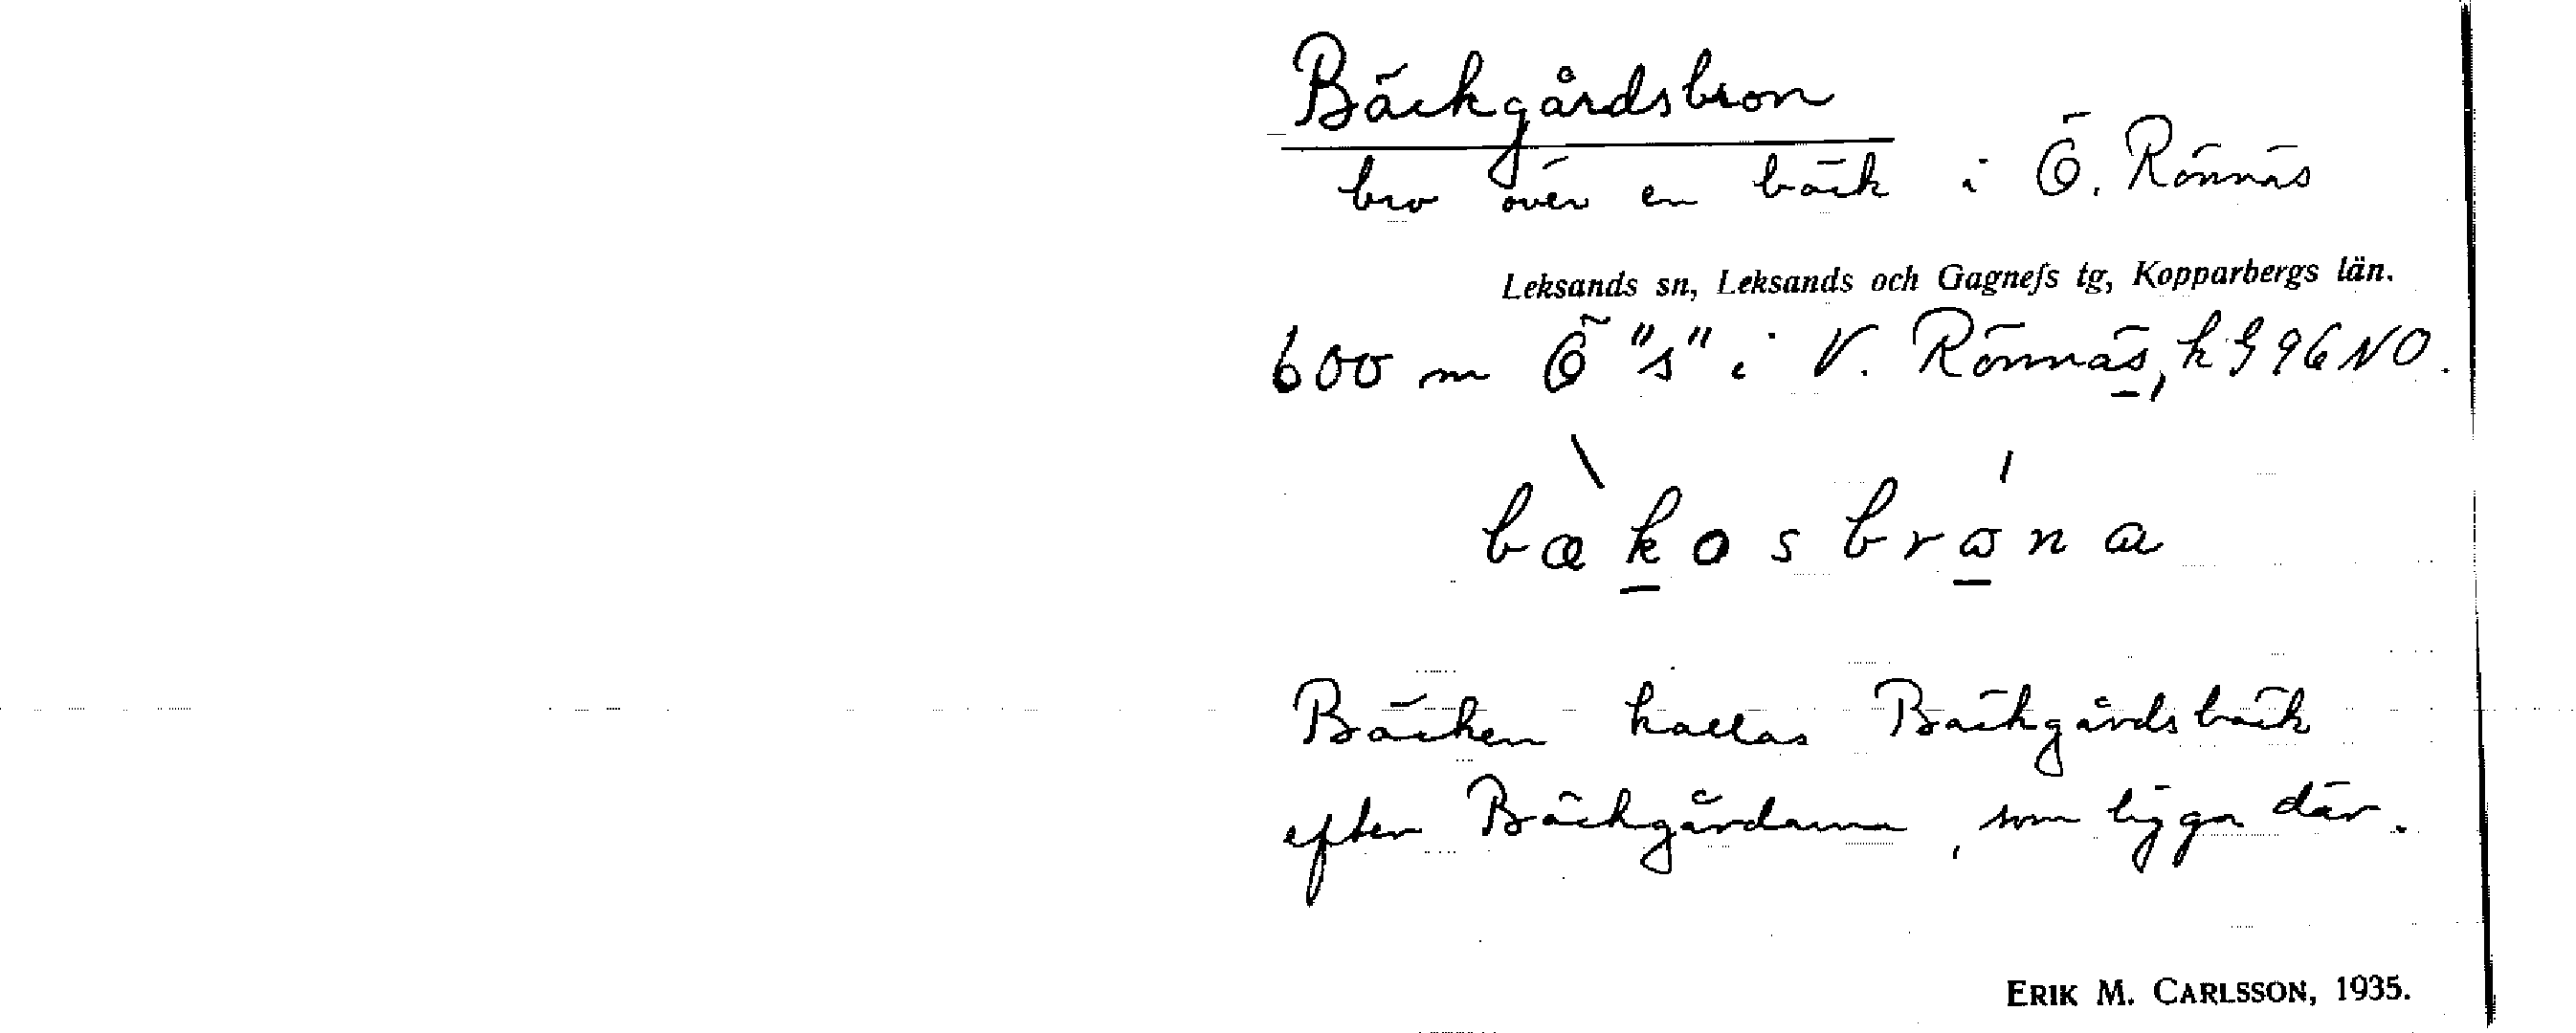 Bäckgårdsbron
bro över en bäck i Ö. Rönnäs
Leksands sn, Leksands och Gagnefs tg, Kopparbergs län.
600 m Ö "s" i V. Rönnäs, k G 96 NO.
bækosbrona
Bäcken kallas Bäckgårdsbäck
efter Bäckgårdarna, som ligga där.
ERIK M. CARLSSON, 1935.